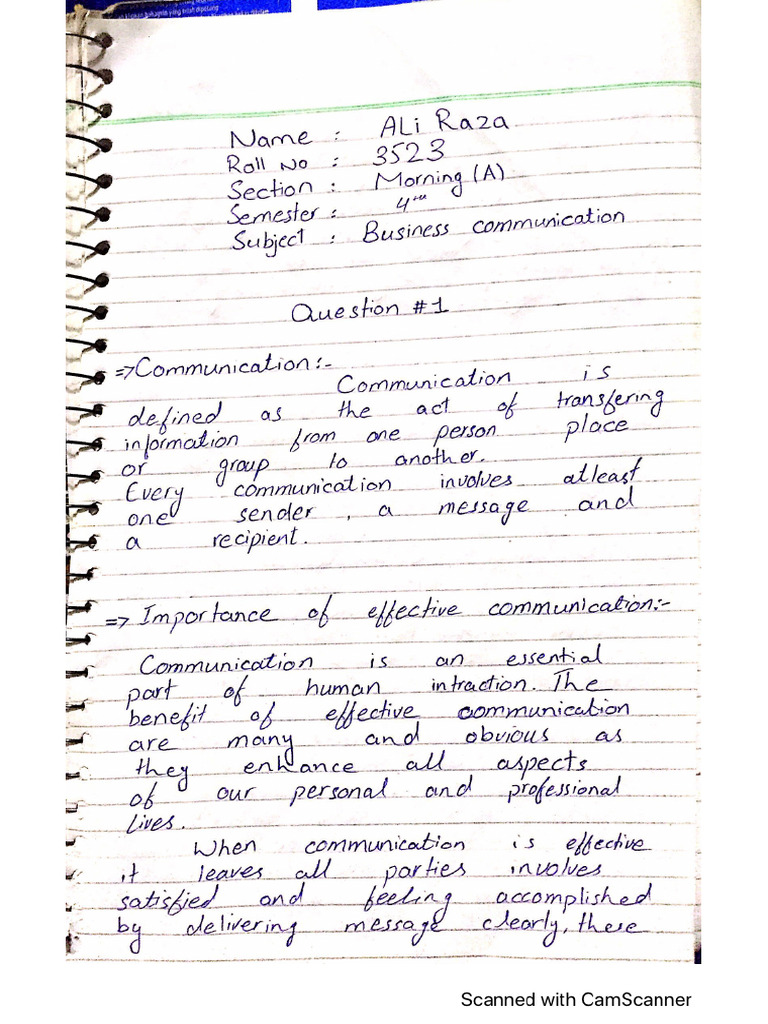 Name : ALi Raza
Roll No : 3523
Section : Morning (A)
Semester : 4th
Subject : Business communication
Question #1
=> Communication:-
Communication is
defined as the act of transfering
information from one person place
or group to another.
Every communication involves atleast
one sender, a message and
a recipient.
=> Importance of effective communication:-
Communication is an essential
part of human intraction. The
benefit of effective communication
are many and obvious as
they enhance all aspects
of our personal and professional
lives.
When communication is effective
it leaves all parties involves
satisfied and feeling accomplished
by delivering message clearly, these
Scanned with CamScanner